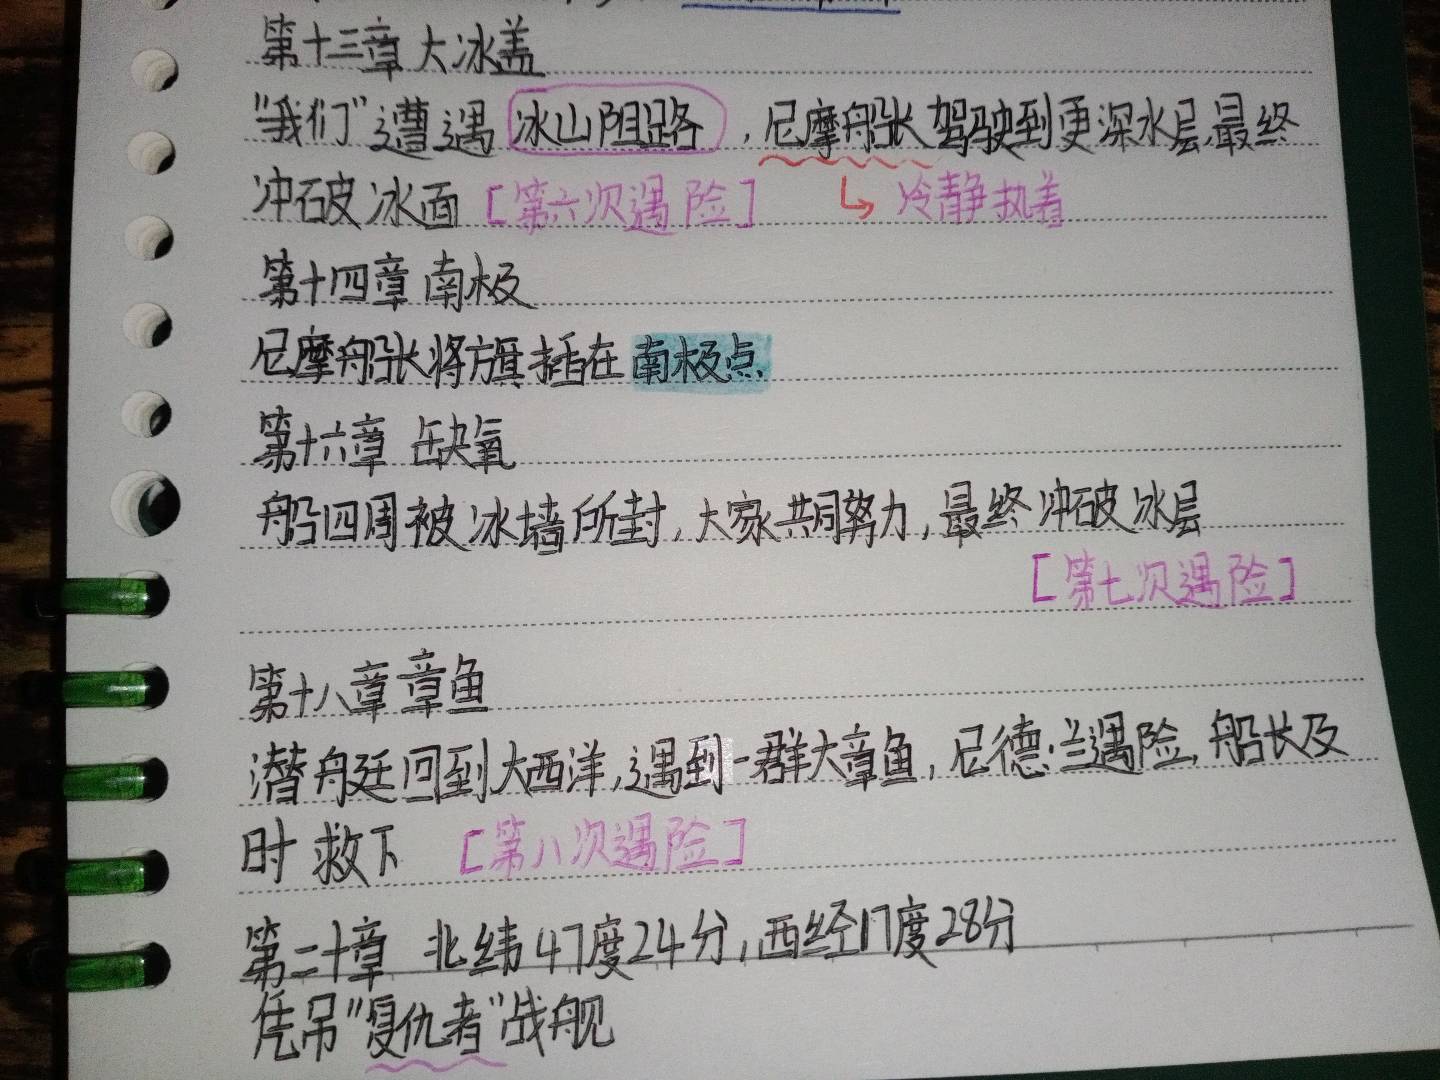 第十三章 大冰盖
"我们"遭遇 冰山阻路,尼摩船长驾驶到更深水层,最终
冲破冰面 [第六次遇险] ↳ 冷静执着
第十四章 南极
尼摩船长将旗插在南极点
第十六章 缺氧
船四周被冰墙所封,大家共同努力,最终冲破冰层
[第七次遇险]
第十八章 章鱼
潜舟廷回到大西洋,遇到一群大章鱼,尼德·兰遇险,船长及
时救下 [第八次遇险]
第二十章 北纬47度24分,西经17度28分
凭吊"复仇者"战舰